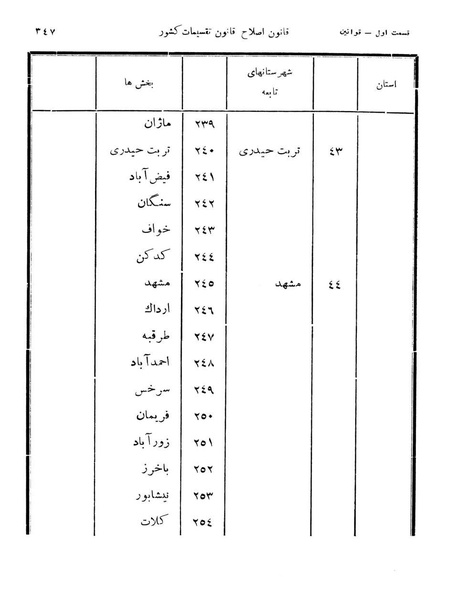 قسمت اول – قوانین قانون اصلاح قانون تقسیمات کشور ۳۴۷
استان شهرستانهای تابعه بخش ها
۲۳۹ ماژان
۴۳ تربت حیدری ۲۴۰ تربت حیدری
۲۴۱ فیض آباد
۲۴۲ سنگان
۲۴۳ خواف
۲۴۴ کدکن
۴۴ مشهد ۲۴۵ مشهد
۲۴۶ ارداك
۲۴۷ طرقبه
۲۴۸ احمدآباد
۲۴۹ سرخس
۲۵۰ فریمان
۲۵۱ زورآباد
۲۵۲ باخرز
۲۵۳ نیشابور
۲۵٤ کلات